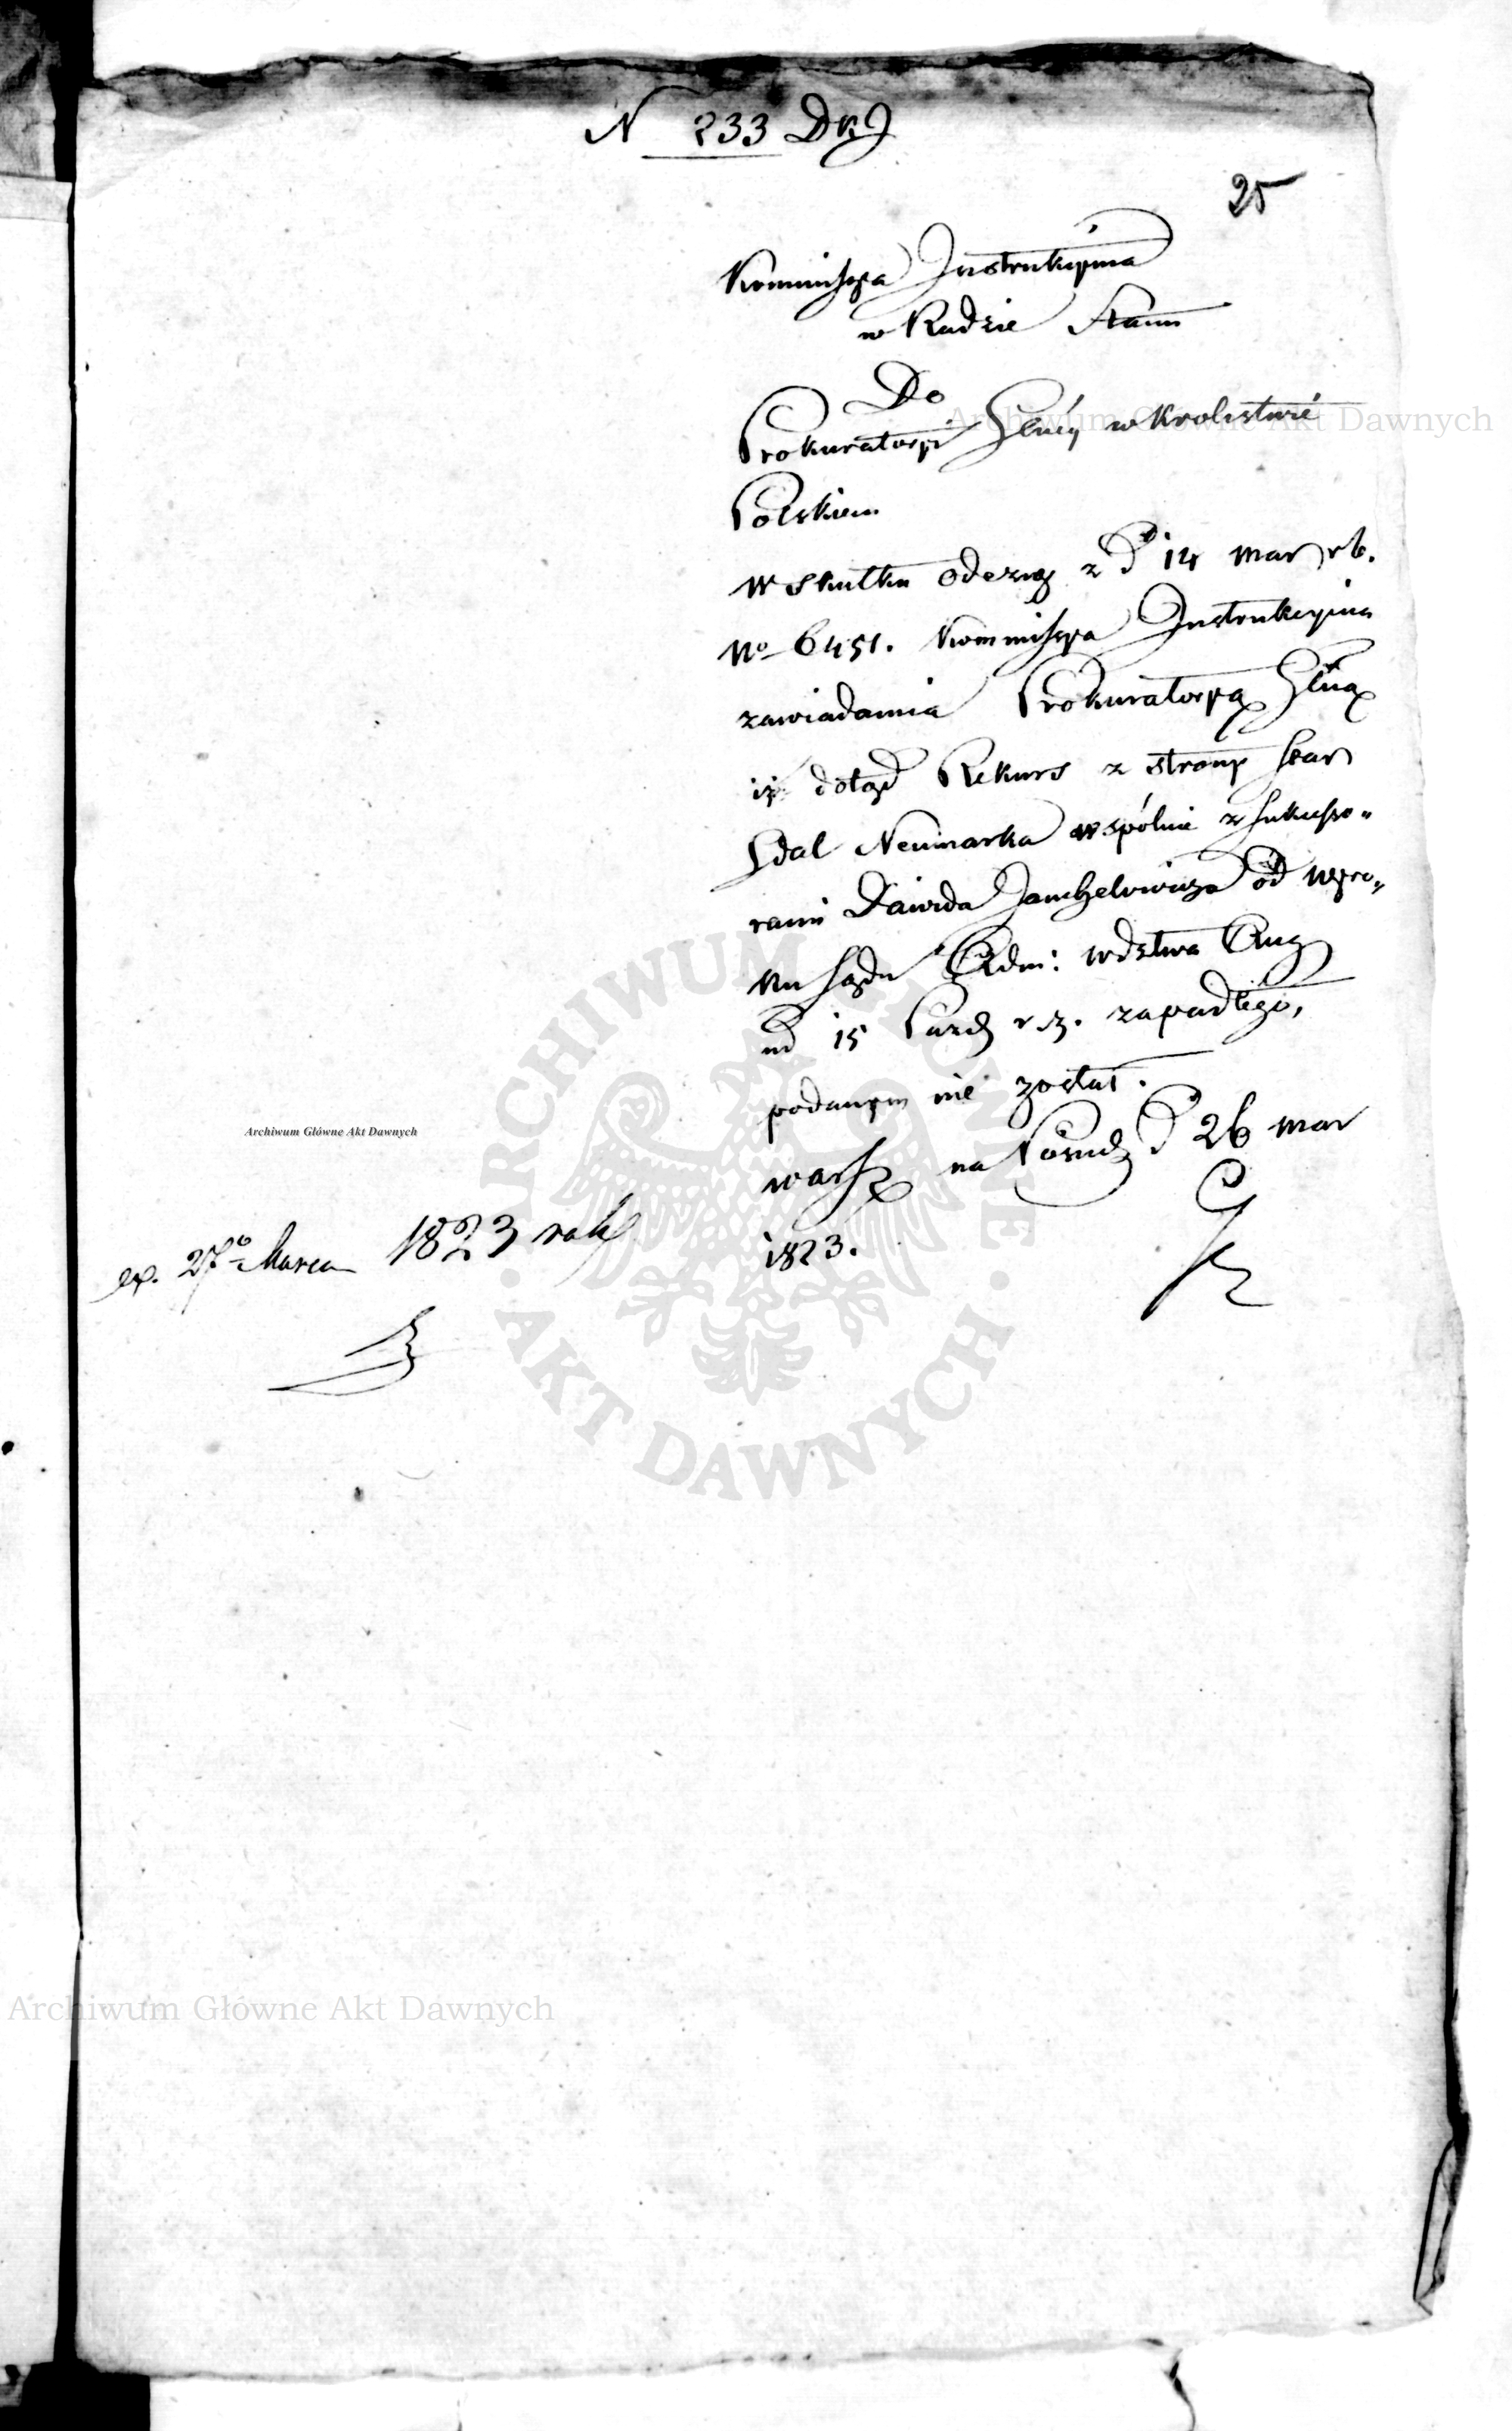 N 233 DKJ
25
Kommissya Instrukcyina
w Radzie Stanu
Do
Prokuratoryi Głney w Krolestwie
Polskiem
W skutku odezwy z d 14 mar rb.
No 6451. Kommissya Instrukcyina
zawiadamia Prokuratoryą Głną
iż dotąd Rekurs z strony
Neumarka wspólnie z sukcesso„
rami Dawida Janchelowicza od wyro„
ku Sądu Adm: Wdztwa Aug
nd 15 Pazdz r.z. zapadłego,
podanym nie został.
Warsz na Posiedz d 26 mar
1823.
ex. 27o Marca 1823 roku
Archiwum Główne Akt Dawnych
Archiwum Główne Akt Dawnych
ARCHIWUM GŁÓWNE AKT DAWNYCH
Archiwum Główne Akt Dawnych